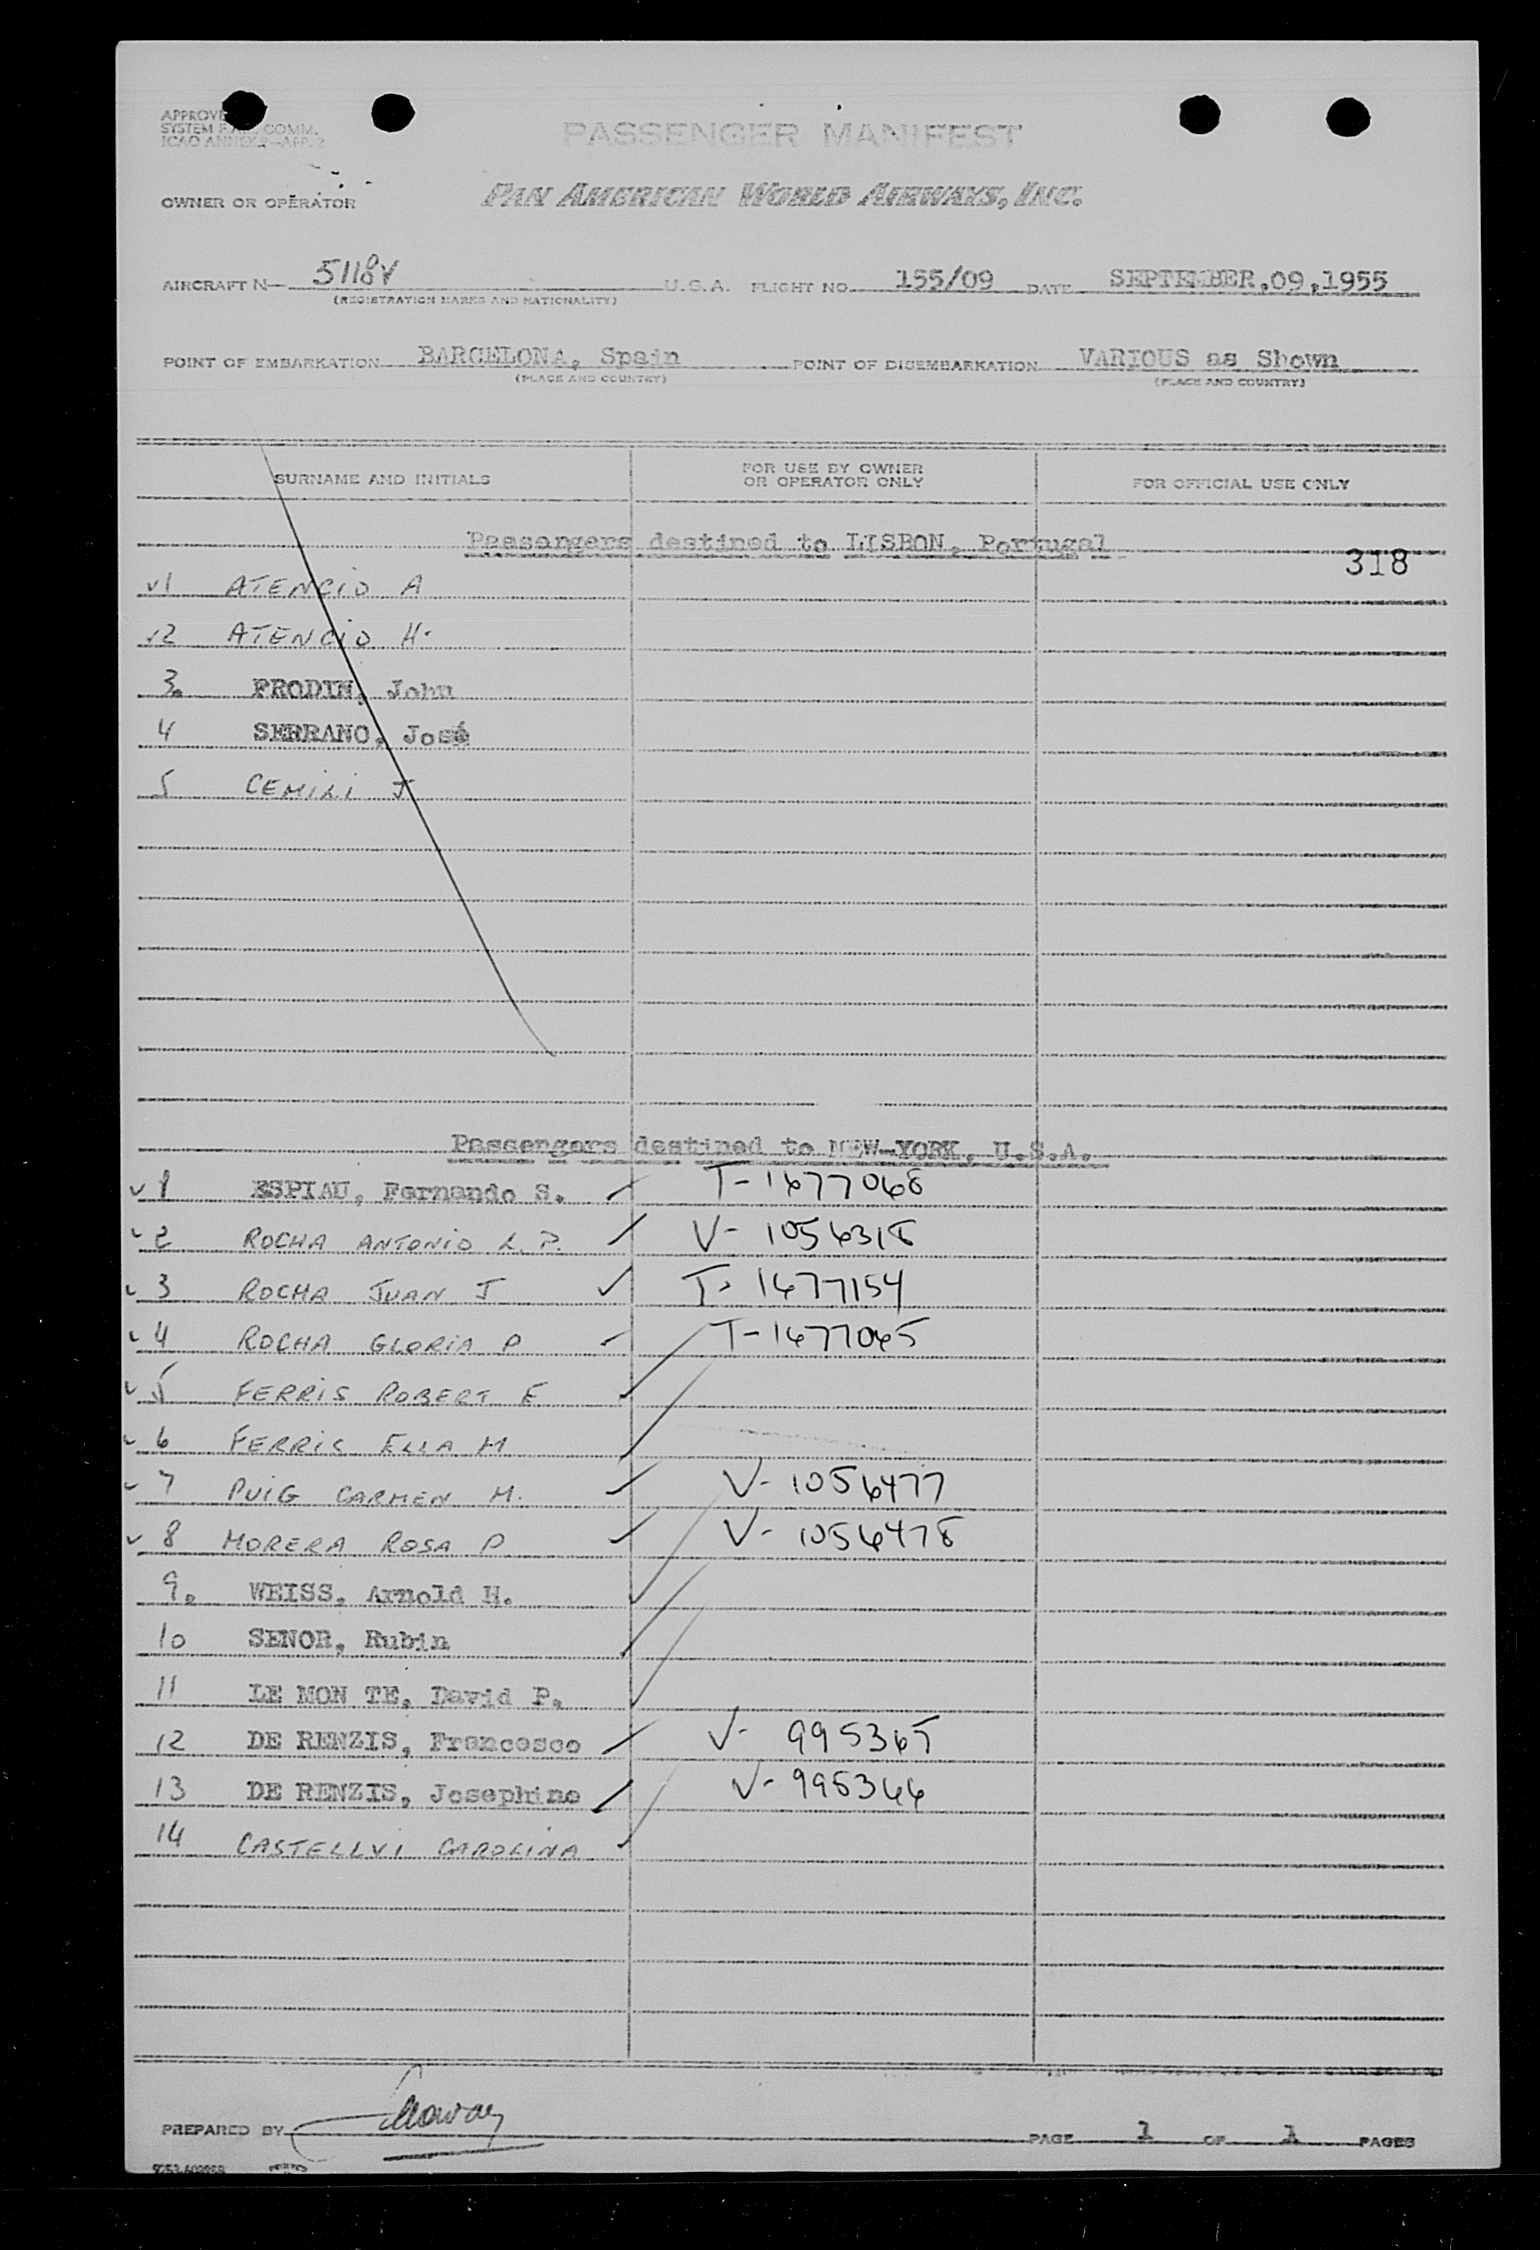 APPROVE
SYSTEM F.A.L. COMM.
ICAO ANNEX 9-APP. 2
PASSENGER MANIFEST
OWNER OR OPERATOR PAN AMERICAN WORLD AIRWAYS, INC.
AIRCRAFT N 5118V U.S.A. FLIGHT NO. 155/09 DATE SEPTEMBER,09,1955
(REGISTRATION MARKS AND NATIONALITY)
POINT OF EMBARKATION BARCELONA, Spain POINT OF DISEMBARKATION VARIOUS as Shown
(PLACE AND COUNTRY) (PLACE AND COUNTRY)
SURNAME AND INITIALS FOR USE BY OWNER OR OPERATOR ONLY FOR OFFICIAL USE ONLY
Passengers destined to LISBON, Portugal
318
1 ATENCIO A
2 ATENCIO H.
3. PRODIN, John
4 SERRANO, José
5 CEMILI J
Passengers destined to NEW-YORK, U.S.A.
1 ESPIAU, Fernando S. T-1677068
2 ROCHA ANTONIO L. P. V-1056318
3 ROCHA JUAN J T-1677154
4 ROCHA GLORIA P T-1677065
5 FERRIS ROBERT E
6 FERRIS ELLA M
7 PUIG CARMEN M. V-1056477
8 MORERA ROSA P V-1056478
9. WEISS, Arnold H.
10 SENOR, Rubin
11 LE MON TE, David P.
12 DE RENZIS, Francesco V-995365
13 DE RENZIS, Josephine V-995366
14 CASTELLVI CAROLINA
PREPARED BY PAGE 1 OF 1 PAGES